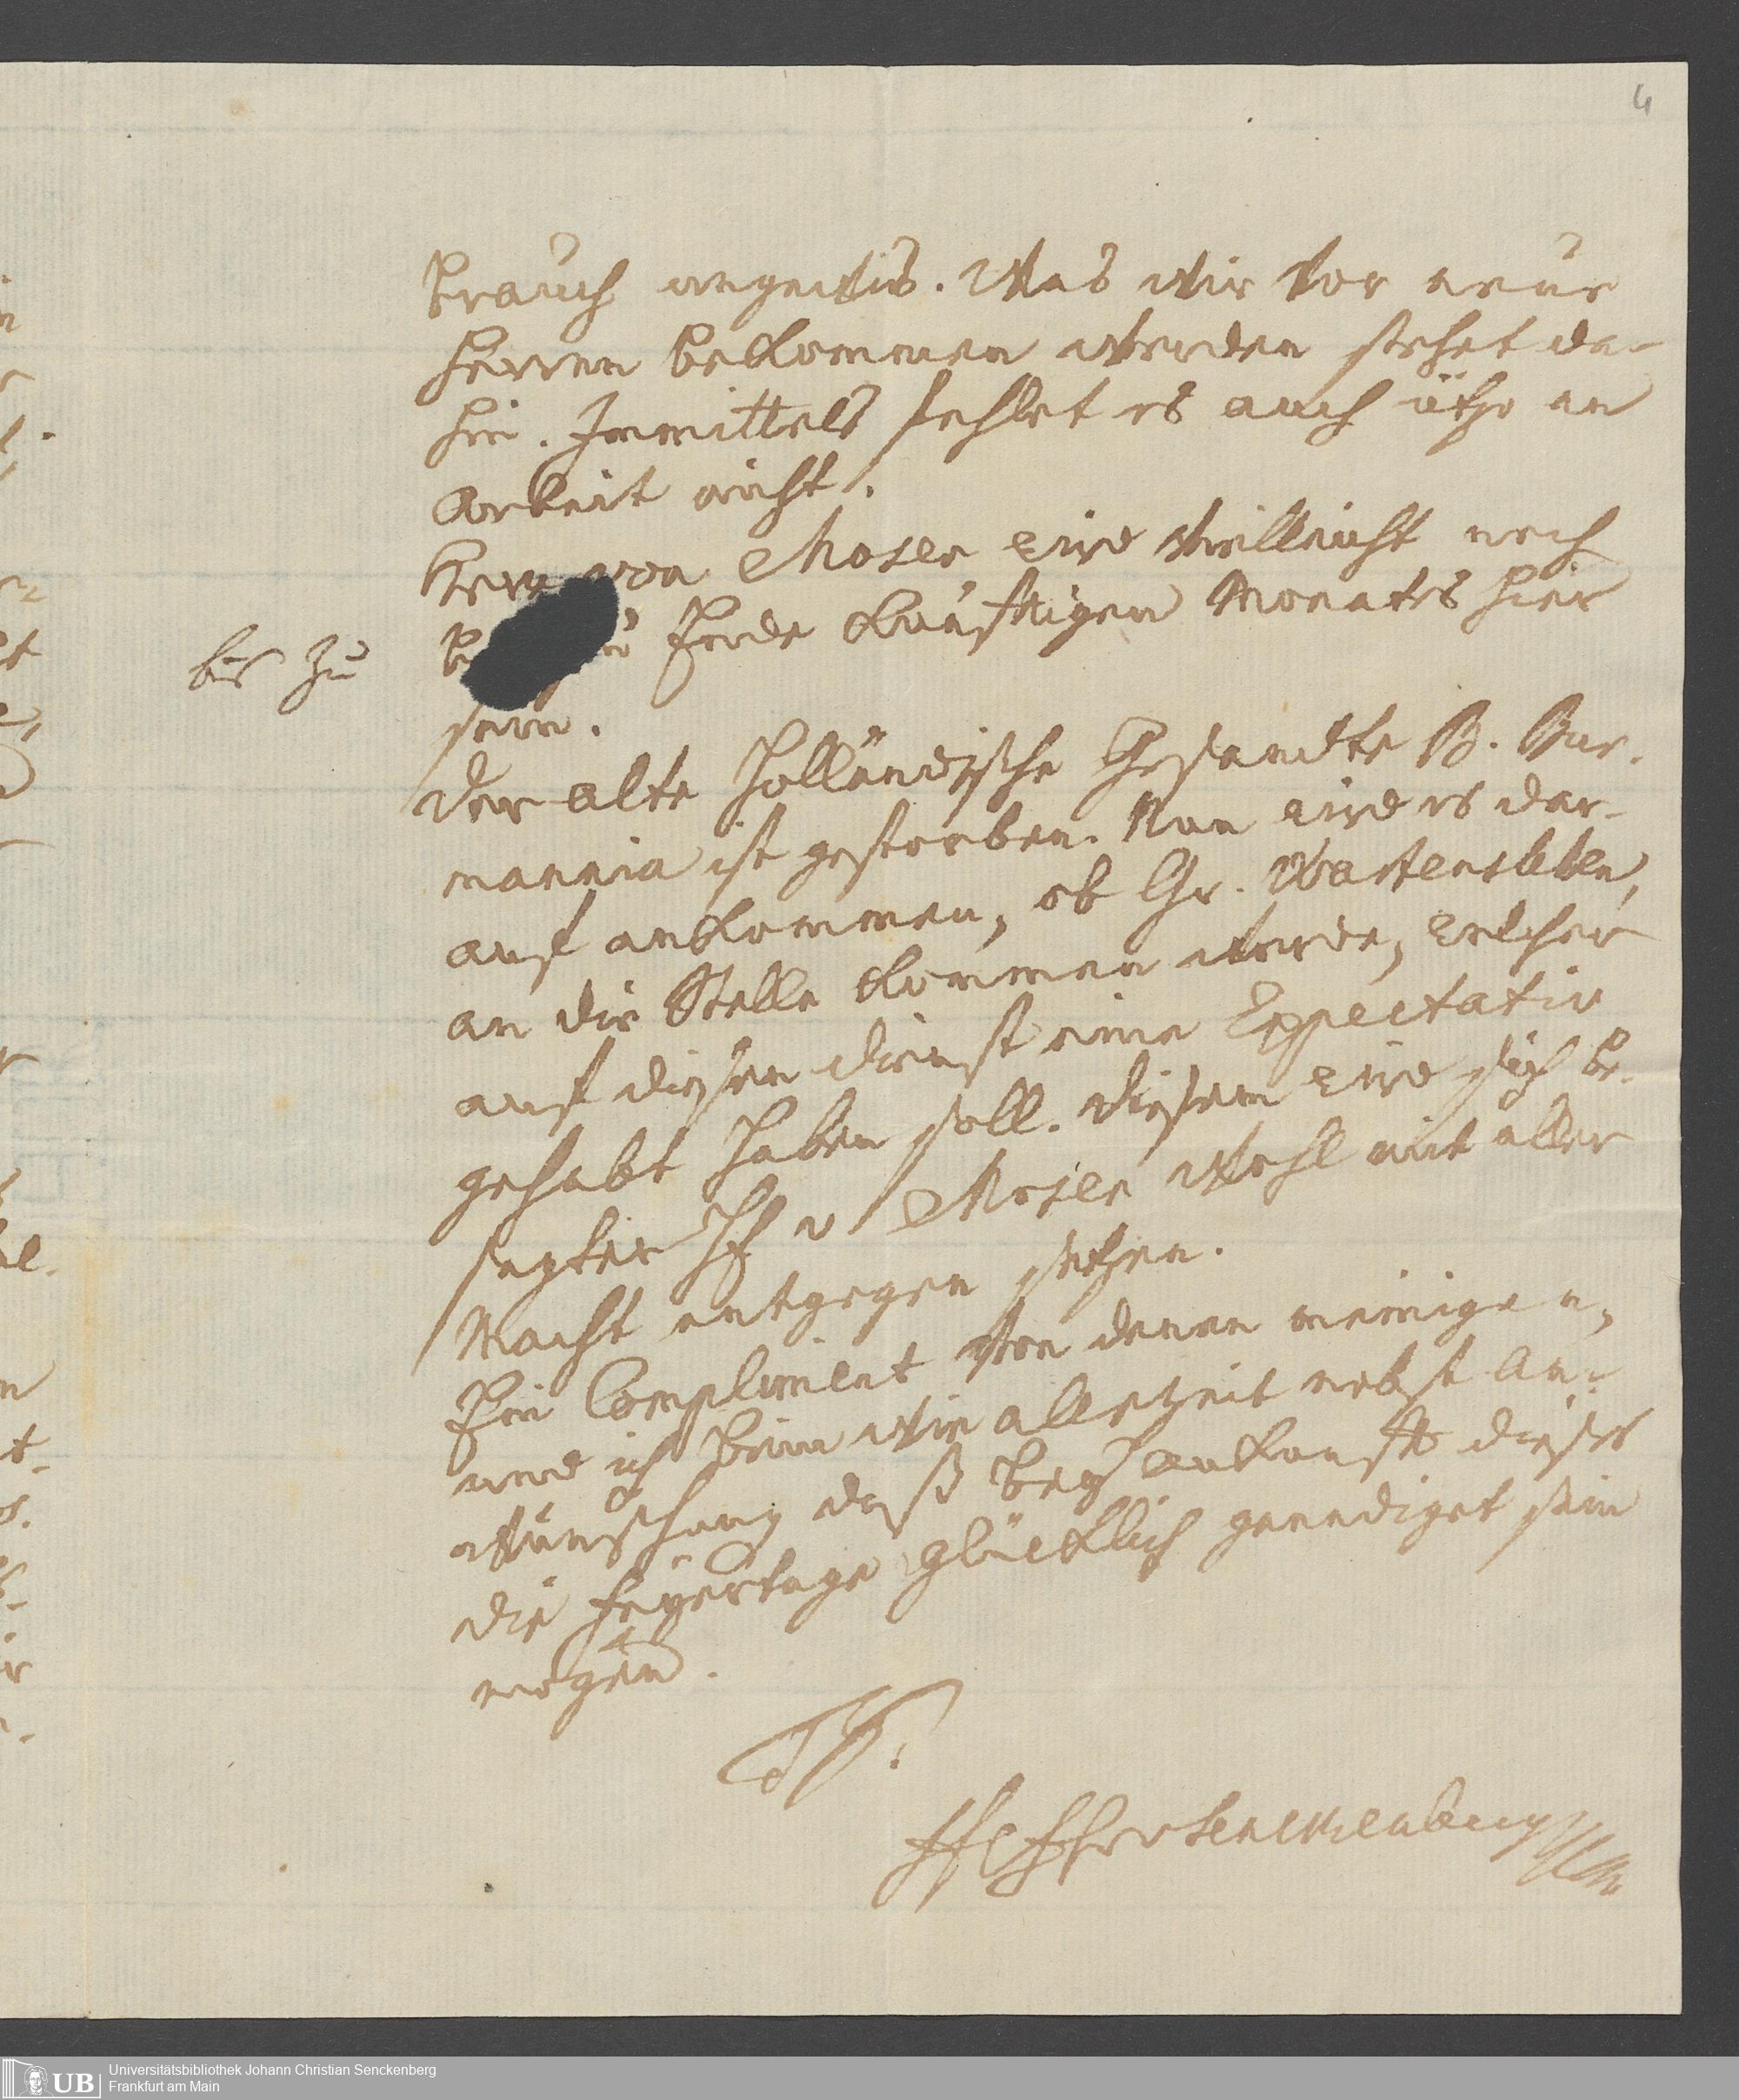 4
brauch ungewiß. Was wir vor neue
Herren bekommen werden stehet da-
hin. Immittels fehlet es auch itzo an
Arbeit nicht.
Herr von Moser wird vielleicht noch
bis zu
Ende künfftigen Monats hier
seyn.
Der alte Holländische Gesandte B. Bur-
mannia ist gestorben. Nun wird es dar-
auf ankommen, ob Gr. Wartensleben,
an die Stelle kommen werde, welcher
auf diesen dienst eine Expectativ
gehabt haben soll. Diesem wird sich be-
sagter H v Moser wohl mit aller
Macht entgegen setzen.
Ein Compliment von denen meinigen,
und ich bin wie allezeit nebst An-
wünschung daß bey Ankunft dieses
die Feyertage glücklich geendiget seyn
mögen.
Senckenberg
UB
Universitätsbibliothek Johann Christian Senckenberg
Frankfurt am Main